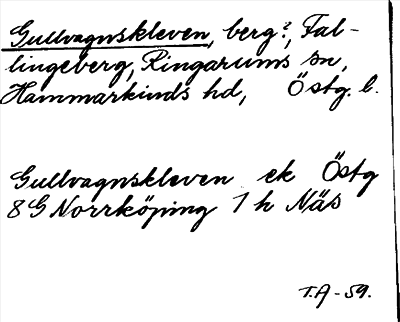 Gullvagnskleven, berg?, Fal-
lingeberg, Ringarums sn,
Hammarkinds hd, Östg. l.
Gullvagnskleven ek Östg
8G Norrköping 1h Näs
T.A-59.